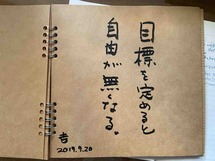 目標を定めると
自由が無くなる。
2019.9.20